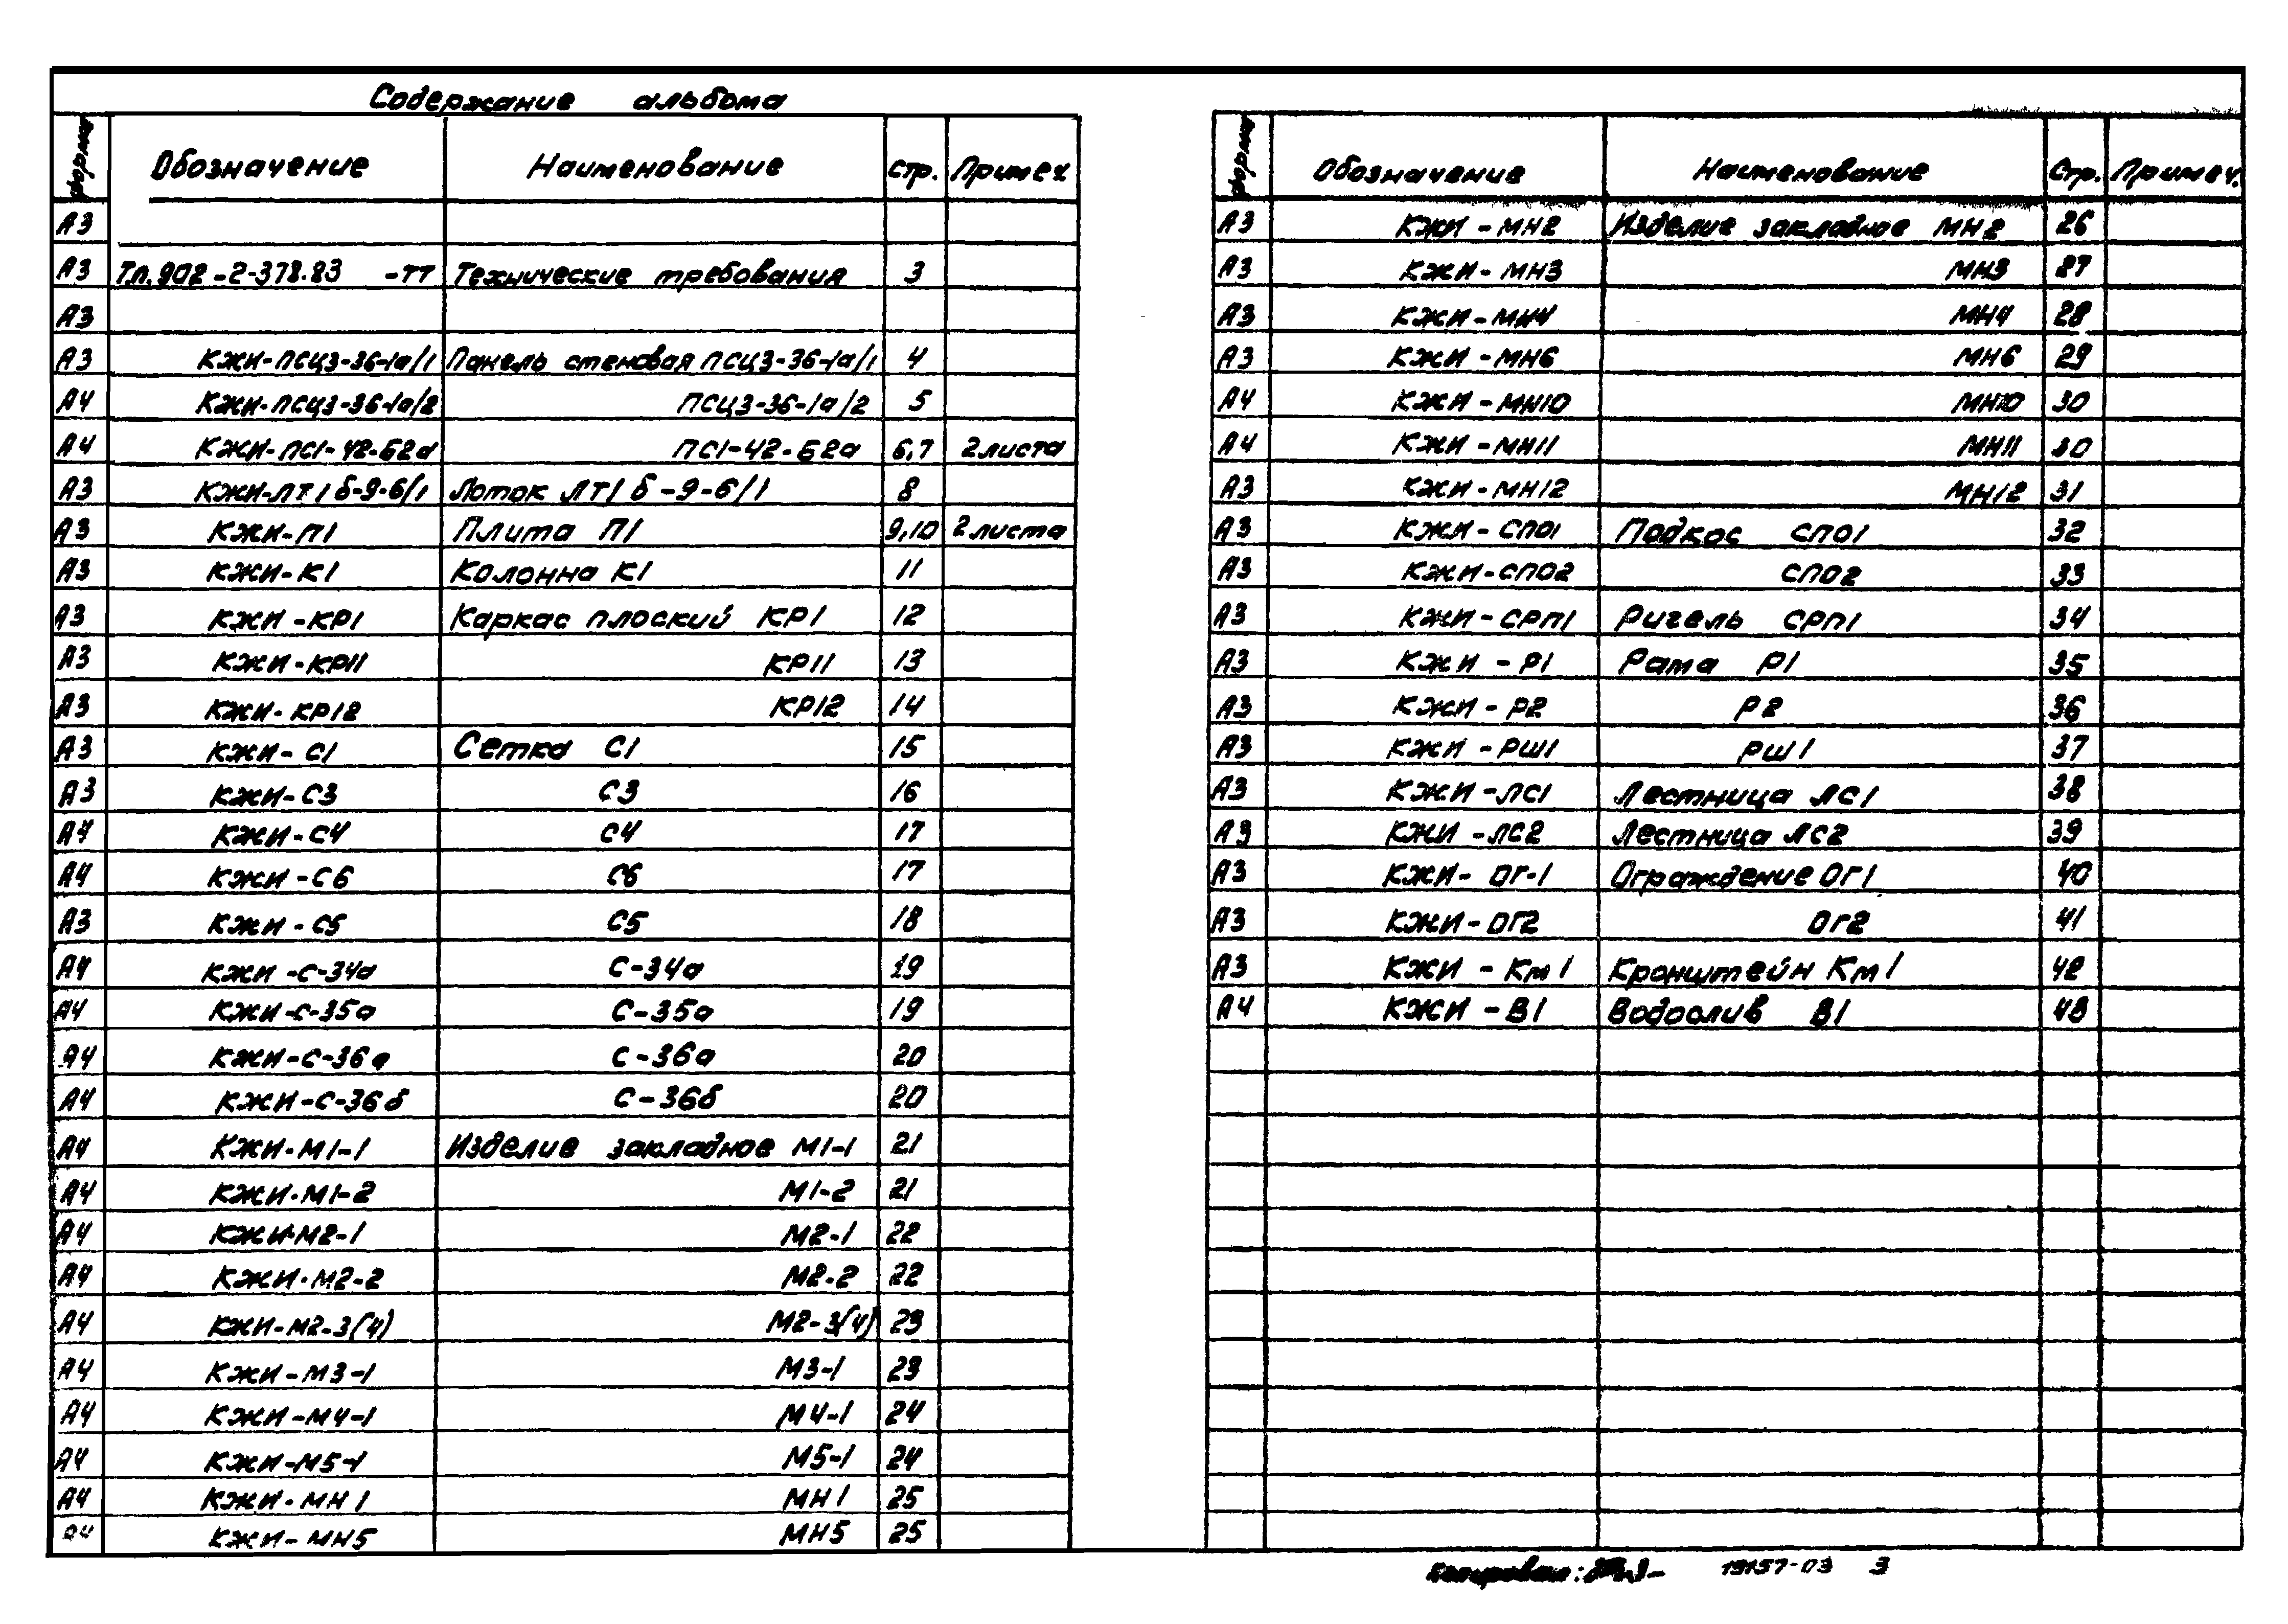 Содержание альбома
Формат Обозначение Наименование Стр. Примеч
А3
А3 Т.п. 902-2-378.83 -ТТ Технические требования 3
А3
А3 КЖИ-ПСЦ3-36-1а/1 Панель стеновая ПСЦ3-36-1а/1 4
А4 КЖИ-ПСЦ3-36-1а/2 ПСЦ3-36-1а/2 5
А4 КЖИ-ПС1-42-Б2а ПС1-42-Б2а 6,7 2 листа
А3 КЖИ-ЛТ1б-9-6/1 Лоток ЛТ1б-9-6/1 8
А3 КЖИ-П1 Плита П1 9,10 2 листа
А3 КЖИ-К1 Колонна К1 11
А3 КЖИ-КР1 Каркас плоский КР1 12
А3 КЖИ-КР11 КР11 13
А3 КЖИ-КР12 КР12 14
А3 КЖИ-С1 Сетка С1 15
А3 КЖИ-С3 С3 16
А4 КЖИ-С4 С4 17
А4 КЖИ-С6 С6 17
А3 КЖИ-С5 С5 18
А4 КЖИ-С-34а С-34а 19
А4 КЖИ-С-35а С-35а 19
А4 КЖИ-С-36а С-36а 20
А4 КЖИ-С-36б С-36б 20
А4 КЖИ-М1-1 Изделие закладное М1-1 21
А4 КЖИ-М1-2 М1-2 21
А4 КЖИ-М2-1 М2-1 22
А4 КЖИ-М2-2 М2-2 22
А4 КЖИ-М2-3(4) М2-3(4) 23
А4 КЖИ-М3-1 М3-1 23
А4 КЖИ-М4-1 М4-1 24
А4 КЖИ-М5-1 М5-1 24
А4 КЖИ-МН1 МН1 25
А4 КЖИ-МН5 МН5 25
Формат Обозначение Наименование Стр. Примеч.
А3 КЖИ-МН2 Изделие закладное МН2 26
А3 КЖИ-МН3 МН3 27
А3 КЖИ-МН4 МН4 28
А3 КЖИ-МН6 МН6 29
А4 КЖИ-МН10 МН10 30
А4 КЖИ-МН11 МН11 30
А3 КЖИ-МН12 МН12 31
А3 КЖИ-СПО1 Подкос СПО1 32
А3 КЖИ-СПО2 СПО2 33
А3 КЖИ-СРП1 Ригель СРП1 34
А3 КЖИ-Р1 Рама Р1 35
А3 КЖИ-Р2 Р2 36
А3 КЖИ-РШ1 РШ1 37
А3 КЖИ-ЛС1 Лестница ЛС1 38
А3 КЖИ-ЛС2 Лестница ЛС2 39
А3 КЖИ-ОГ-1 Ограждение ОГ1 40
А3 КЖИ-ОГ2 ОГ2 41
А3 КЖИ-Км1 Кронштейн Км1 42
А4 КЖИ-В1 Водослив В1 43
Копировал: 19157-03 3